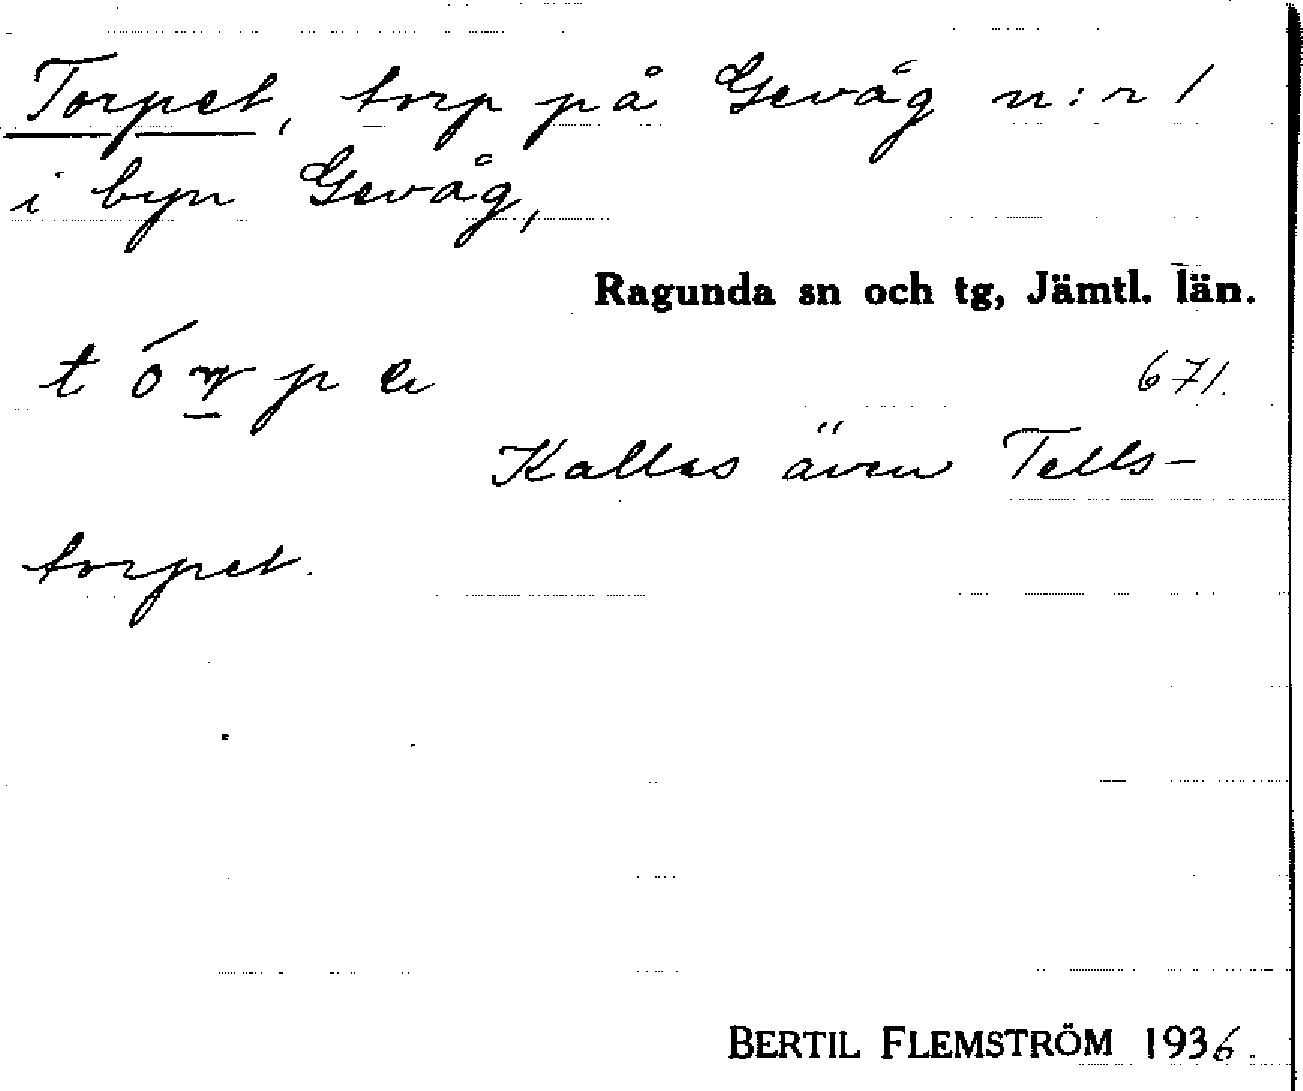 Torpet, torp på Gevåg n:r 1
i byn Gevåg,
Ragunda sn och tg, Jämtl. län.
671.
Kallas även Tells-
torpet.
BERTIL FLEMSTRÖM 1936.